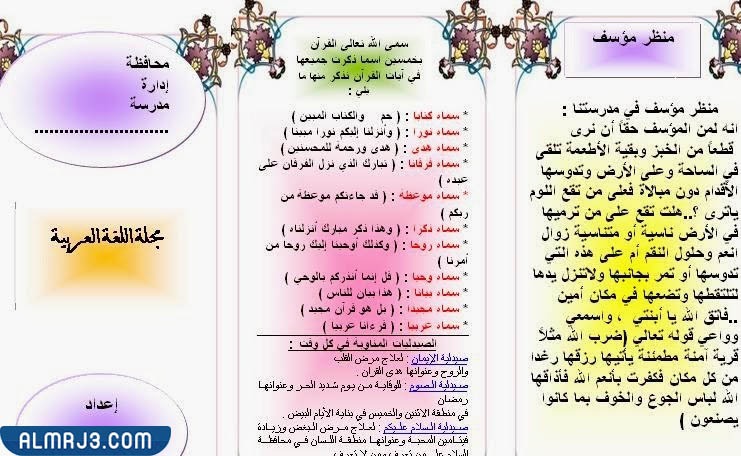 منظر مؤسف
منظر مؤسف في مدرستنا :
انه لمن المؤسف حقًا أن نرى
قطعاً من الخبز وبقية الأطعمة تلقى
في الساحة وعلى الأرض وتدوسها
الأقدام دون مبالاة فعلى من تقع اللوم
ياترى ؟..هلت تقع على من ترميها
في الأرض ناسية أو متناسية زوال
انعم وحلول النقم أم على هذه التي
تدوسها أو تمر بجانبها ولاتنزل يدها
لتلتقطها وتضعها في مكان أمين
..فاتق الله يا أبنتي ، واسمعي
وواعي قوله تعالي (ضرب الله مثلاً
قرية آمنة مطمئنة يأتيها رزقها رغدا
من كل مكان فكفرت بأنعم الله فأذاقها
الله لباس الجوع والخوف بما كانوا
يصنعون )
سمى الله تعالى القرآن
بخمسين اسما ذكرت جميعها
في آيات القرآن نذكر منها ما
يلي :
* سماه كتابا : ( حم والكتاب المبين )
* سماه نورا : ( وأنزلنا إليكم نورا مبينا )
* سماه هدى : ( هدى ورحمة للمحسنين )
* سماه فرقانا : ( تبارك الذي نزل الفرقان على
عبده )
* سماه موعظة : ( قد جاءتكم موعظة من
ربكم )
* سماه ذكرا : ( وهذا ذكر مبارك أنزلناه )
* سماه روحا : ( وكذلك أوحينا إليك روحا من
أمرنا )
* سماه وحيا : ( قل إنما أنذركم بالوحي )
* سماه بيانا : ( هذا بيان للناس )
* سماه مجيدا : ( بل هو قرآن مجيد )
* سماه عربيا : ( قرءانا عربيا )
الصيدليات المناوبة في كل وقت :
صيدلية الإيمان : لعلاج مرض القلب
والروح وعنوانها هدى القران .
صيدلية الصوم : للوقاية من يوم شديد الحر وعنوانها
رمضان
في منطقة الاثنين والخميس في بناية الأيام البيض .
صيدلية السلام عليكم : لعلاج مرض البغض وزيادة
فيتامين المحبة وعنوانها منطقة اللسان في محافظة
السلام على من تعرف ومن لا تعرف
محافظة
إدارة
مدرسة
............................
مجلة اللغة العربية
إعداد
ALMRJ3.COM